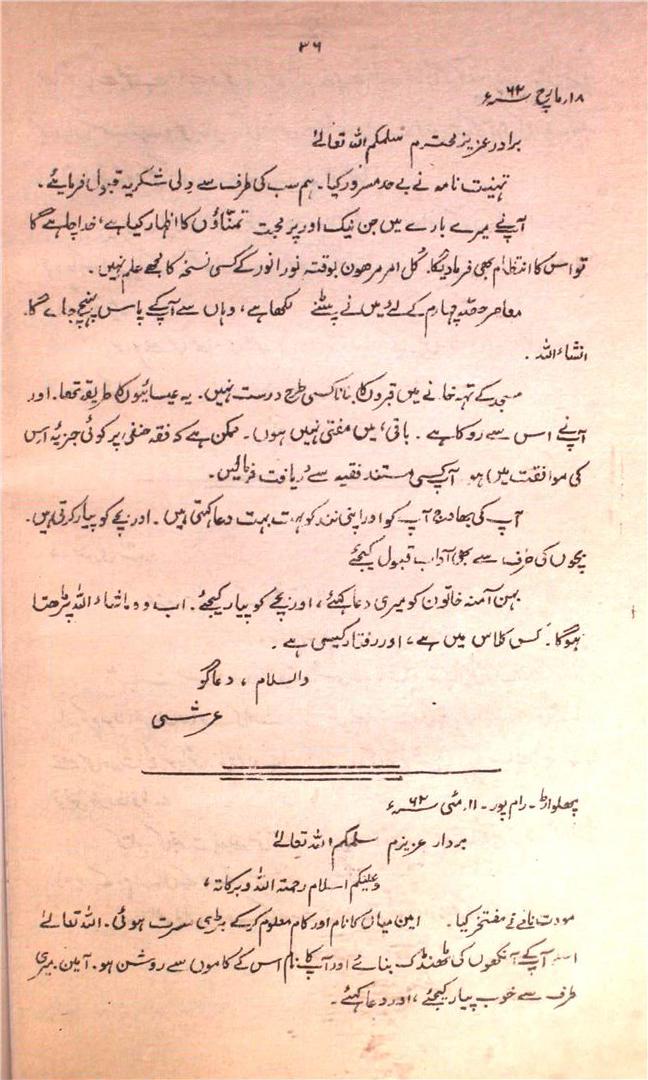 ۳۶
۱۸ مارچ ۶۲ء
برادر عزیز محترم سلمکم اللہ تعالیٰ
تہنیت نامہ نے بے حد مسرور کیا۔ ہم سب کی طرف سے دلی شکریہ قبول فرمایئے۔
آپنے میرے بارے میں جن نیک اور پر محبت تمنّاؤں کا اظہار کیا ہے، خدا چاہے گا
تو اس کا انتظام بھی فرما دیگا۔ کُل امر مرھون بوقتہ نور انور کے کسی نسخہ کا مجھے علم نہیں۔
معاصر حصّہ چہارم کے لئے میں نے پٹنے لکھا ہے، وہاں سے آپ کے پاس پہنچ جاے گا۔
انشاء اللہ۔
مسجد کے تہہ خانے میں قبروں کا بنانا کسی طرح درست نہیں۔ یہ عیسائیوں کا طریقہ تھا۔ اور
آپنے اس سے روکا ہے۔ باقی، میں مفتی نہیں ہوں۔ ممکن ہے کہ فقہ حنفی پر کوئی جزیہ اس
کی موافقت میں ہو آپ کسی مستند فقیہ سے دریافت فرمالیں۔
آپ کی بھاوج آپ کو اور اپنی نند کو بہت بہت دعا کہتی ہیں۔ اور بچے کو پیار کرتی ہیں۔
بچوں کی طرف سے بھی آداب قبول کیجئے
بہن آمنہ خاتون کو میری دعا کہئے، اور بچے کو پیار کیجئے۔ اب وہ ماشاء اللہ پڑھتا
ہوگا۔ کس کلاس میں ہے، اور رفتار کیسی ہے۔
والسلام، دعاگو
عرشی
پھلواڑ۔ رام پور۔ ۱۱ مئی ۶۲ء
بردار عزیزم سلمکم اللہ تعالیٰ
وعلیکم اسلام رحمتہ اللہ وبرکاتہ،
مودت نامے نے مفتخر کیا۔ امین میاں کا نام اور کام معلوم کر کے بڑی مسرت ہوئی۔ اللہ تعالےٰ
اسے آپ کے آنکھوں کی ٹھنڈک بنائے اور آپ کا نام اس کے کاموں سے روشن ہو۔ آمین میری
طرف سے خوب پیار کیجئے، اور دعا کہئے۔